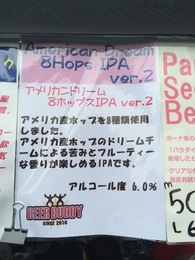 American Dream
8Hops IPA
ver.2
アメリカンドリーム
8ホップスIPA ver.2
アメリカ産ホップを8種類使用
しました。
アメリカ産ホップのドリームチ
ームによる苦みとフルーティー
な香りが楽しめるIPAです。
アルコール度 6.0%
BEER BUDDY
SINCE 2010
Pa
See
Be
ガーナ産の